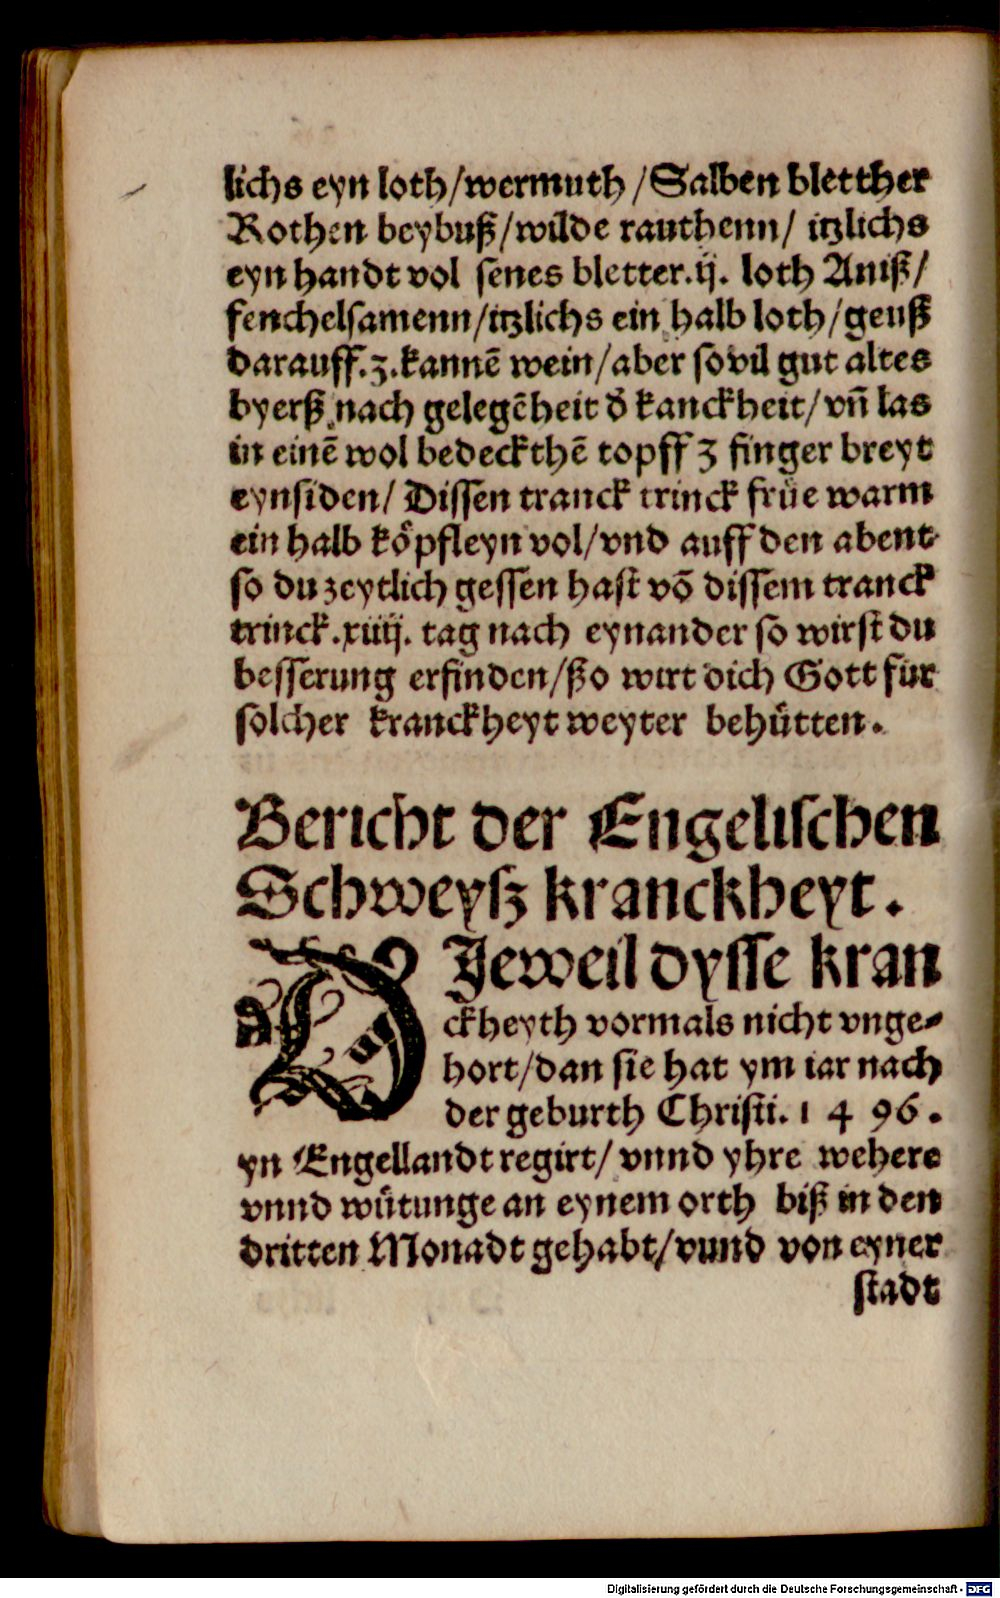 lichs eyn loth/wermuth/Salben bletther
Rothen beybuß/wilde rauthenn/ itzlichs
eyn handt vol senes bletter.ij. loth Aniß/
fenchelsamenn/itzlichs ein halb loth/geuß
darauff.3.kannē wein/aber sovil gut altes
byerß nach gelegēheit d̄ kanckheit/vn̄ las
in einē wol bedeckthē topff 3 finger breyt
eynsiden/ Dissen tranck trinck frůe warm
ein halb kőpfleyn vol/vnd auff den abent
so du zeytlich gessen hast vō dissem tranck
trinck.xiiij. tag nach eynander so wirst du
besserung erfinden/ßo wirt dich Gott für
solcher kranckheyt weyter behůtten.
Bericht der Engelischen
Schweysz kranckheyt.
DJeweil dysse kran
ckheyth vormals nicht vnge-
hort/dan sie hat ym iar nach
der geburth Christi. 1 4 96.
yn Engellandt regirt/ vnnd yhre wehere
vnnd wůtunge an eynem orth biß in den
dritten Monadt gehabt/vund von eyner
stadt
Digitalisierung gefördert durch die Deutsche Forschungsgemeinschaft - DFG